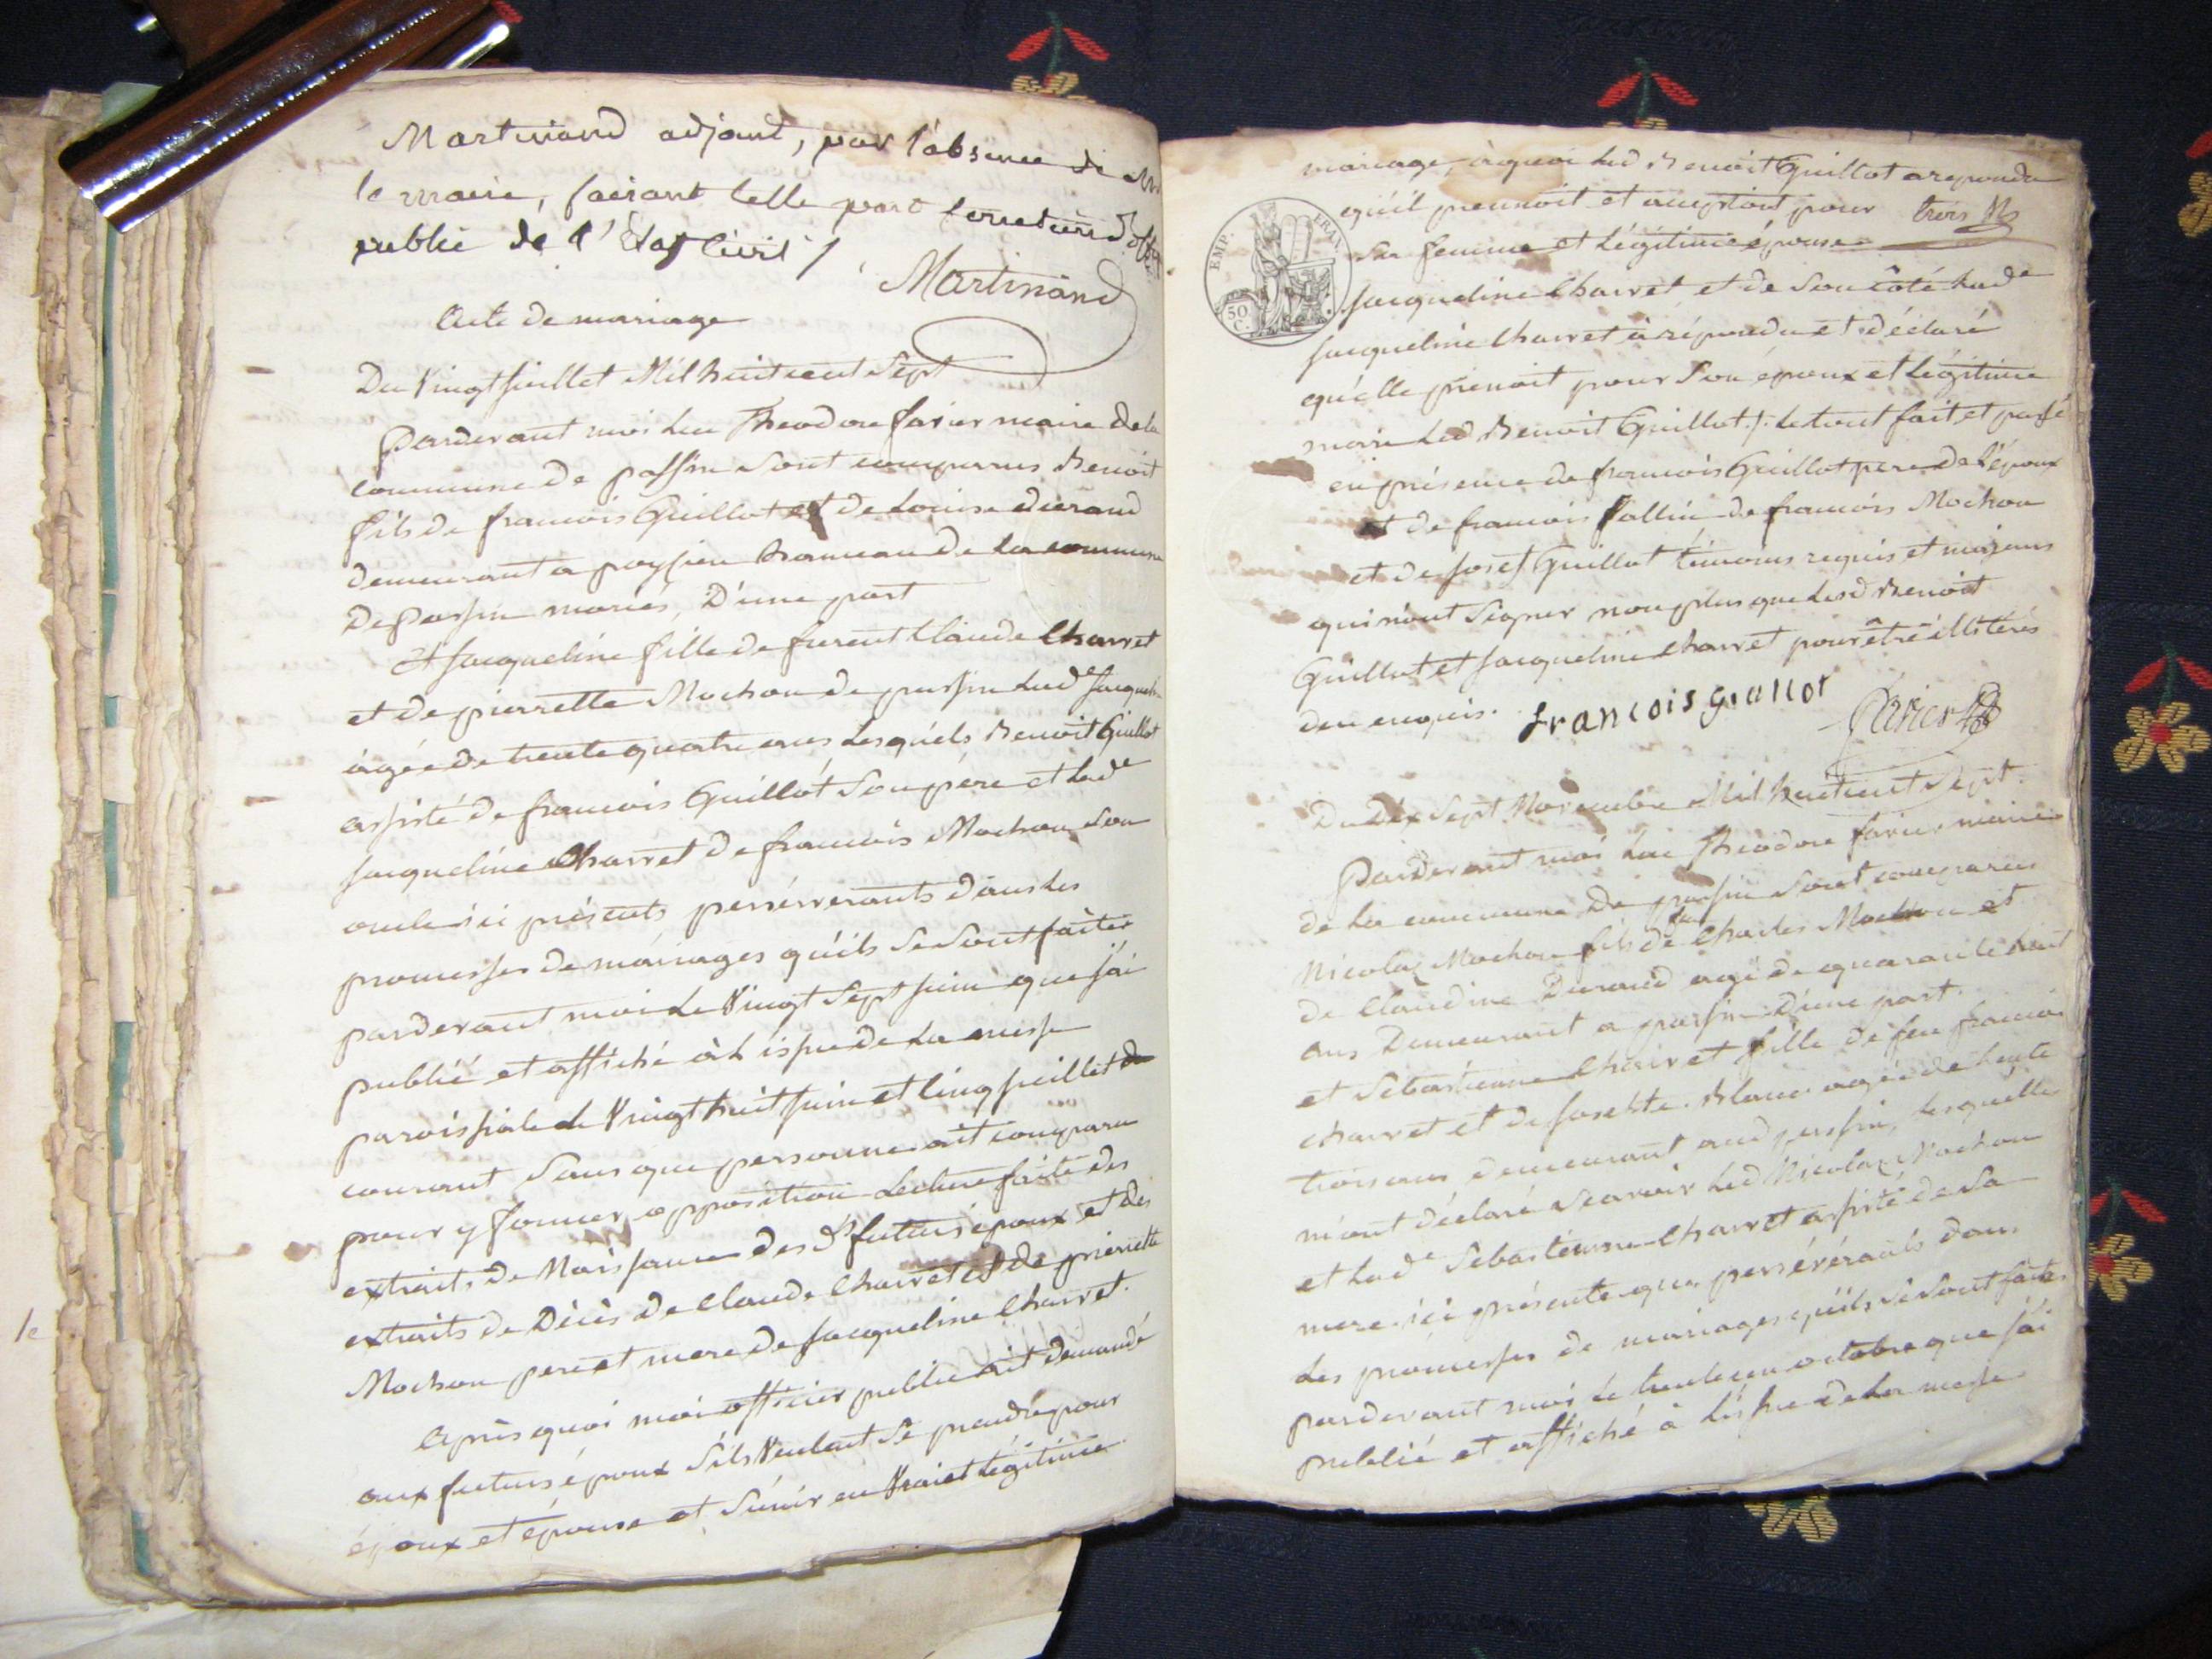 Martinand adjoint, par l'absence de Mr
le maire, faisant telle part fonctions d'off
public de l'Etat Civil /.
Martinand
Acte de mariage
Du Vingt Juillet Mil huit cent Sept
Parderant moi Luc Theodore farier maire de la
commune de passin Sont comparus Benoit
fils de francois Guillot et de Louise durand
demeurant a poysieu hameau de la commune
De Passin mariés, D'une part
Et Jacqueline fille de furent Claude Charvet
et de pierrette Mochon de passin Lade Jacqueline
agée de trente quatre ans Lesquels Benoit Guillot
assisté de francois Guillot Son père et Lade
Jacqueline Charvet de francois Mochon Son
oncle ici présents persévérants dans Les
promesses de mariages qu'ils Se Sont faites
parderant moi Le Vingt Sept Juin que J'ai
publié et affiché à L'issue de La messe
paroissiale Le Vingt huit Juin et Cinq Juillet du
courant Sans que personne ait comparu
pour y former opposition Lecture faite des
extraits de Naissance des ds futurs époux et des
extraits de Décès de Claude Charvet et de pierrette
Mochon pere et mere de Jacqueline Charvet.
Après quoi moi officier public ait demandé
aux futurs époux S'ils Veulent Se prendre pour
époux et épouse et S'unir en Vrai et Légitime
mariage, à quoi Led Benoit Guillot a repondu
qu'il prennoit et acceptoit pour trois
EMP. FRAN.
50 C.
Sa femme et Légitime épouse
Jacqueline Charvet et de Son côté Lade
Jacqueline Charvet à répondu et déclaré
qu'elle prenoit pour Son époux et Légitime
mari Led Benoit Guillot /. Le tout fait et passé
en présence de francois Guillot pere de L'époux
et de francois Jallin de francois Mochon
et de Josef Guillot témoins requis et majeurs
qui n'ont Signer non plus que Lesd Benoit
Guillot et Jacqueline Charvet pour être illitérés
den enquis.
francois giallot
farier
Du Dix Sept Novembre Mil huit cent Sept.
Parderant moi Luc Theodore farier maire
de La commune De passin Sont comparus
Nicolas Mochon fils de feu Charles Mochon et
de Claudine Durand agé de quarante huit
ans Demeurant a passin D'une part.
et Sebastienne Charvet fille de feu francois
charvet et de Josephte Blanc agée de trente
trois ans demeurant aud passin, Lesquelles
m'ont déclaré Scavoir Led Nicolas Mochon
et Lade Sebastienne Charvet assisté de Sa
mere ici présente que persévérants dans
Les promesses de mariages qu'ils Se Sont faites
parderant moi Le trente un octobre que J'ai
publié et affiché à L'issue de La messe